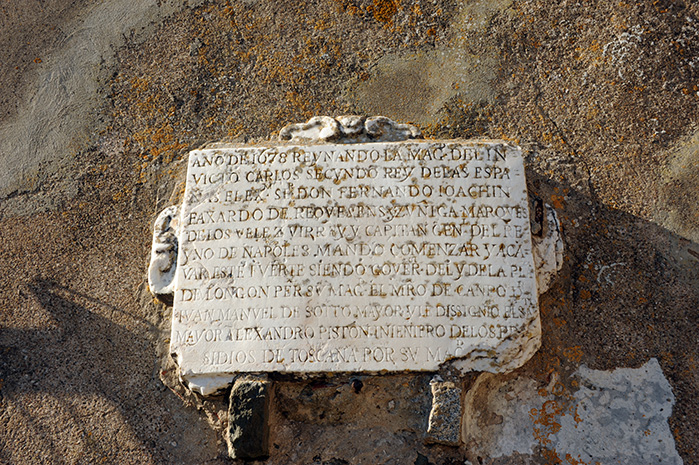 AÑO DE 1678 REYNANDO LA MAG. DEL IN
VICTO CARLOS SECVNDO REY DE LAS ESPA
AS EL EX. Sr. DON FERNANDO IOACHIN
FAXARDO DE REQVESENS Y ZVNIGA MARQVE
DE LOS VELEZ VIRREY Y CAPITAN GEN. DEL RE
YNO DE NAPOLES. MANDO COMENZAR Y ACA
VAR ESTE FVERTE SIENDO GOVER. DEL Y DE LA PL
DE LONGON PER SV MAG. EL MRO DE CANPO
IVAN MANVEL DE SOTTO MAYOR Y LE DISIGNIO EL
MAYOR ALEXANDRO PISTON INIENIERO DE LOS PRE
SIDIOS DE TOSCANA POR SV MAG